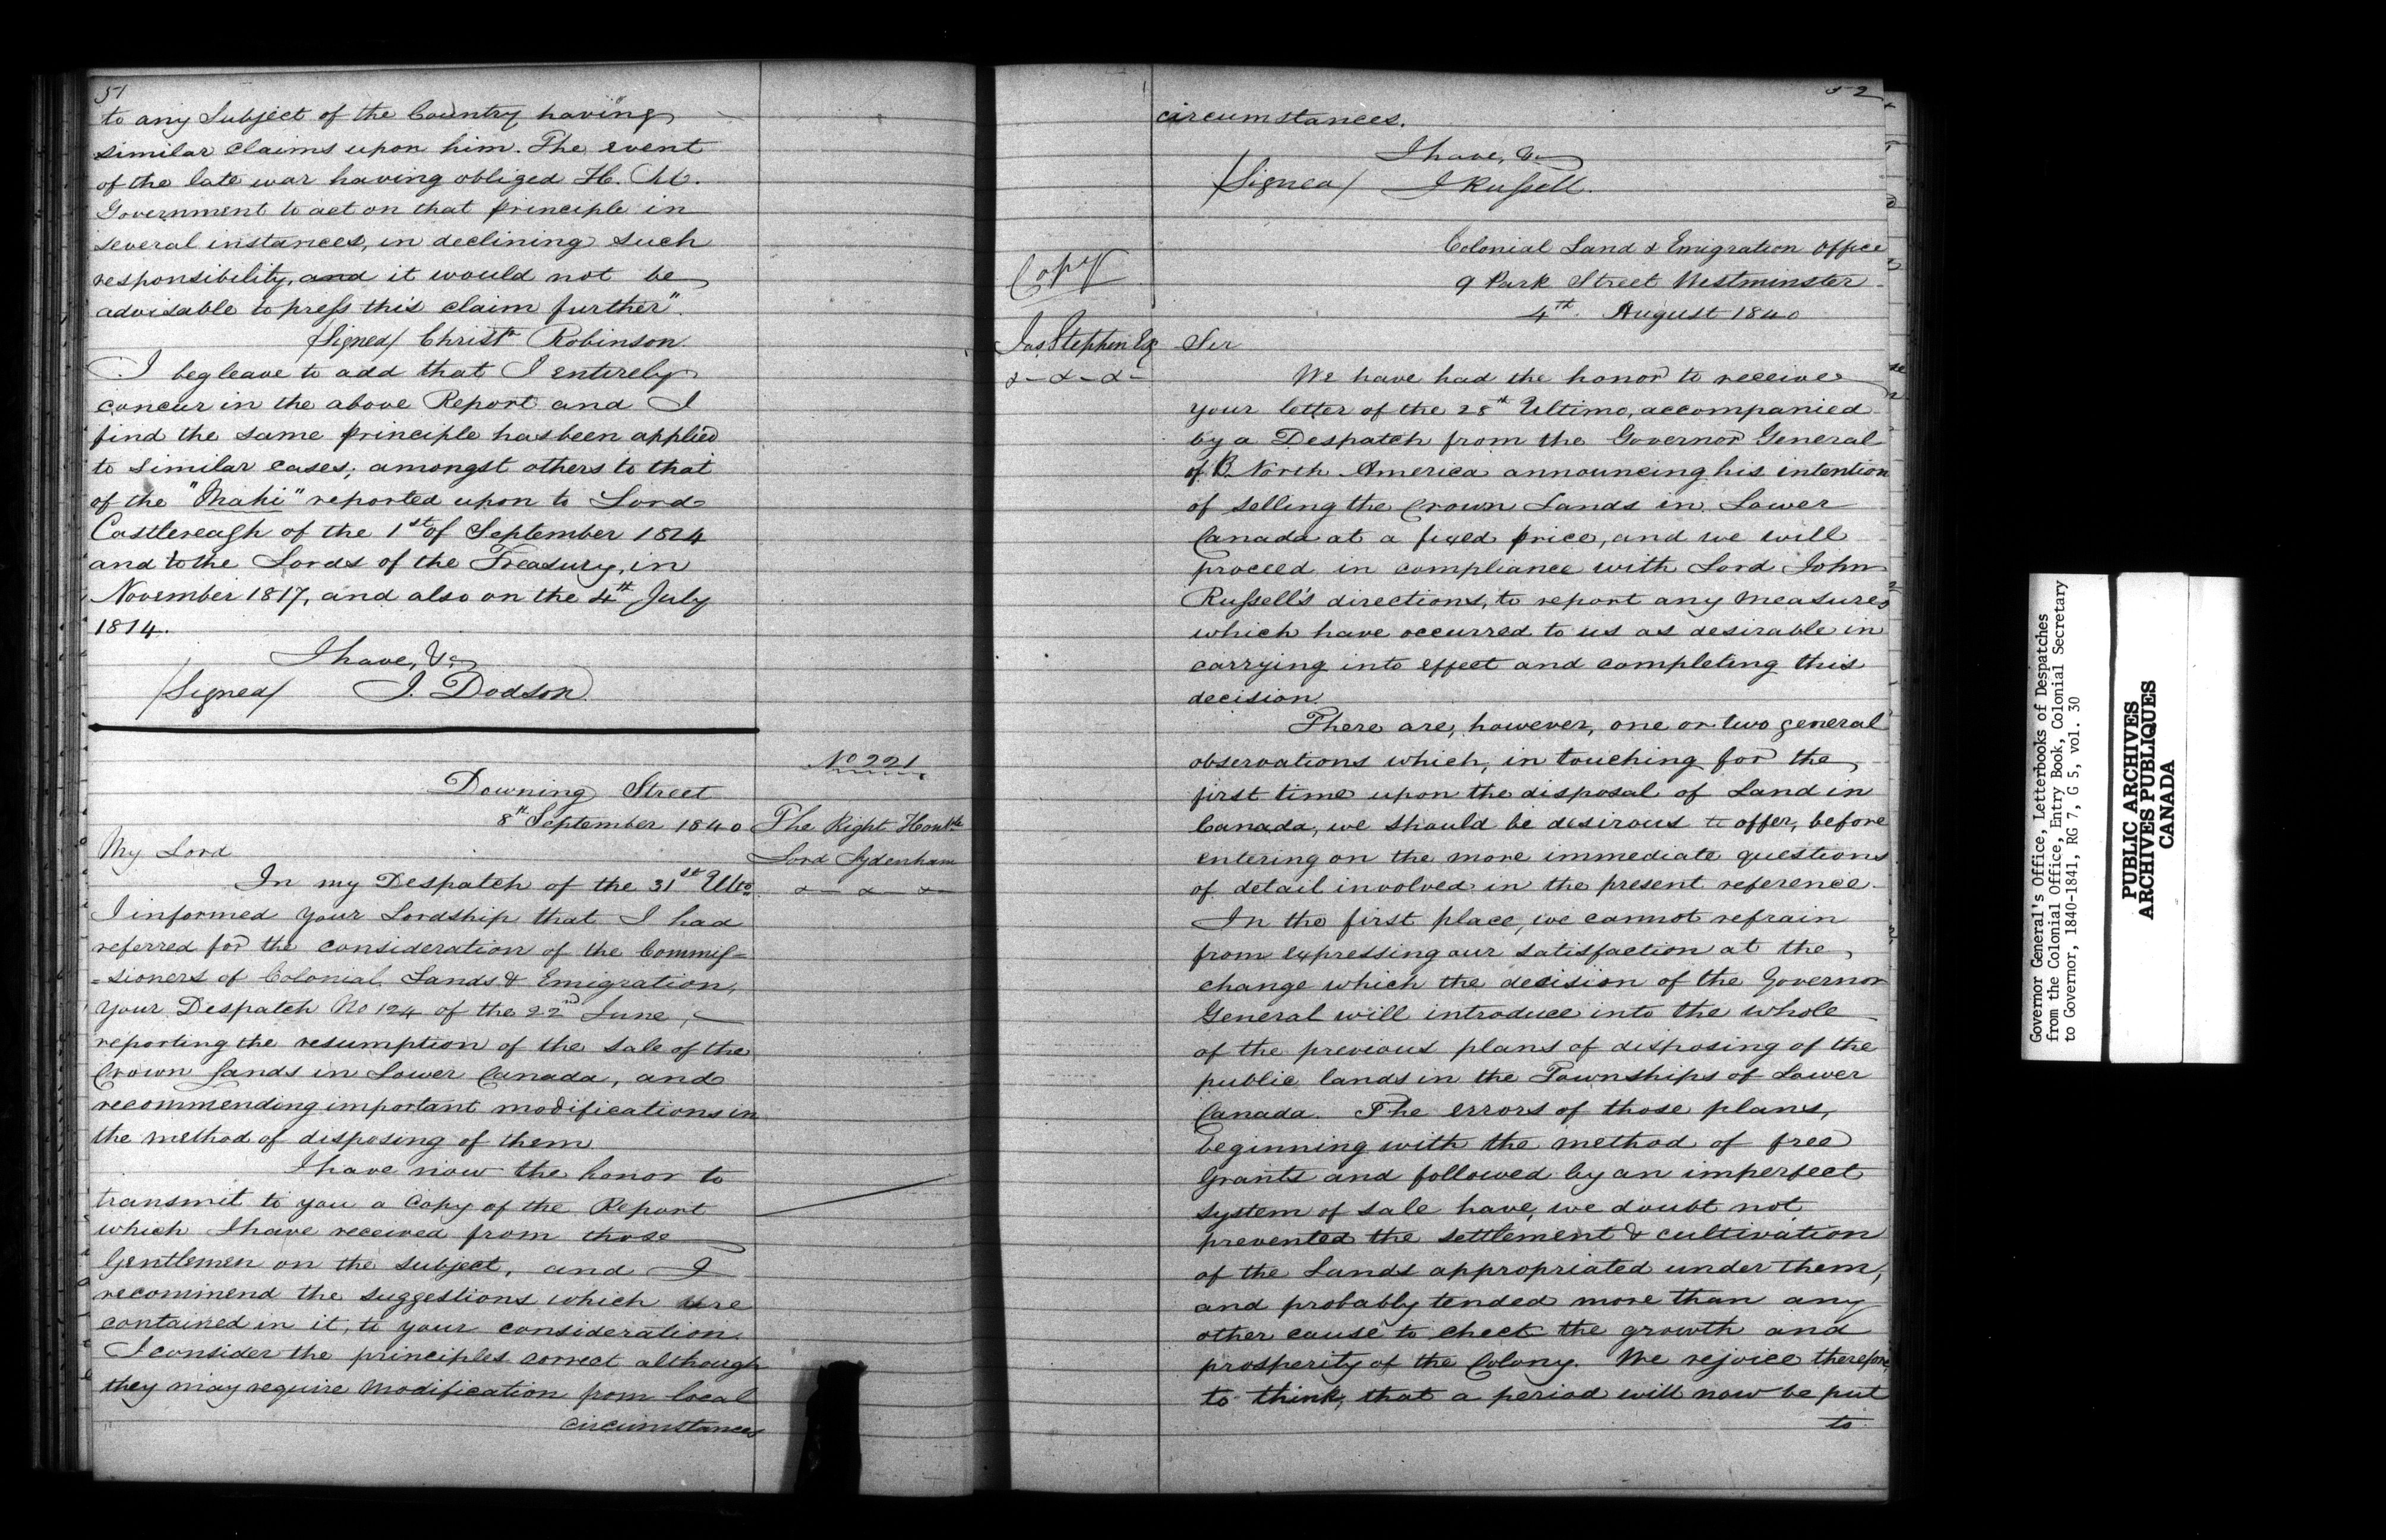 51
to any Subject of the Country having
similar claims upon him. The event
of the late war having obliged H. M.
Government to act on that principle in
several instances, in declining such
responsibility, and it would not be
advisable to press this claim further".
/Signed/ Christr Robinson
I beg leave to add that I entirely
concur in the above Report and I
find the same principle has been applied
to similar cases; amongst others to that
of the "Mahi" reported upon to Lord
Castlereagh of the 1st of September 1814
and to the Lords of the Treasury, in
November 1817, and also on the 4th July
1814.
I have, &c
/Signed/ J. Dodson
No 221
Downing Street
8th September 1840
The Right Honble
Lord Sydenham
&c &c &c
My Lord
In my Despatch of the 31st Ulto
I informed your Lordship that I had
referred for the consideration of the Commis=
=sioners of Colonial Lands & Emigration,
your Despatch No 124 of the 22nd June,
reporting the resumption of the sale of the
Crown Lands in Lower Canada, and
recommending important modifications in
the method of disposing of them.
I have now the honor to
transmit to you a Copy of the Report
which I have received from those
Gentlemen on the subject, and I
recommend the suggestions which are
contained in it, to your consideration.
I consider the principles correct although
they may require modification from local
circumstances
52
circumstances.
I have, &c
/Signed/ J Russell.
Copy
Colonial Land & Emigration Office
9 Park Street Westminster
4th August 1840
Jas Stephen Esq
&c &c &c
Sir
We have had the honor to receive
your letter of the 28th Ultimo, accompanied
by a Despatch from the Governor General
of B. North America announcing his intention
of selling the Crown Lands in Lower
Canada at a fixed price, and we will
proceed in compliance with Lord John
Russell's directions, to report any measures
which have occurred to us as desirable in
carrying into effect and completing this
decision.
There are, however, one or two general
observations which, in touching for the
first time upon the disposal of Land in
Canada, we should be desirous to offer, before
entering on the more immediate questions
of detail involved in the present reference.
In the first place, we cannot refrain
from expressing our satisfaction at the
change which the decision of the Governor
General will introduce into the whole
of the previous plans of disposing of the
public lands in the Townships of Lower
Canada. The errors of those plans,
beginning with the method of free
Grants and followed by an imperfect
system of sale have, we doubt not
prevented the settlement & cultivation
of the Lands appropriated under them,
and probably tended more than any
other cause to check the growth and
prosperity of the Colony. We rejoice therefore,
to think, that a period will now be put
to
Governor General's Office, Letterbooks of Despatches
from the Colonial Office, Entry Book, Colonial Secretary
to Governor, 1840-1841, RG 7, G 5, vol. 30
PUBLIC ARCHIVES
ARCHIVES PUBLIQUES
CANADA